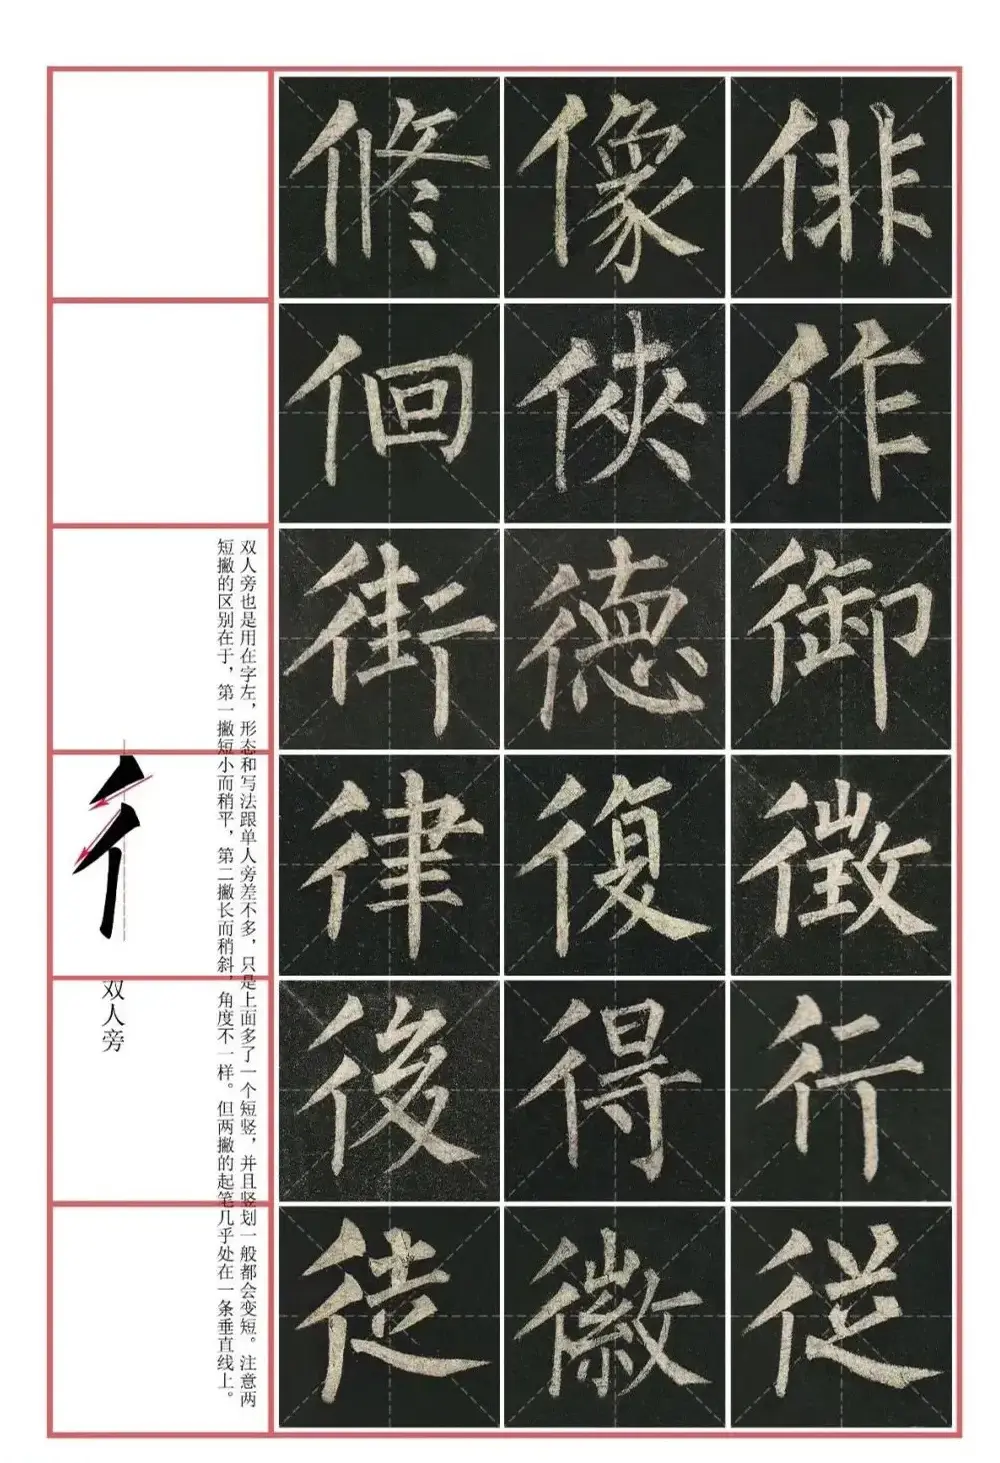 俳作御徵行從
像俠德復得徽
修佪街律後徒
双人旁也是用在字左，形态和写法跟单人旁差不多，只是上面多了一个短竖，并且竖划一般都会变短。注意两
短撇的区别在于，第一撇短小而稍平，第二撇长而稍斜，角度不一样。但两撇的起笔几乎处在一条垂直线上。
彳
双人旁